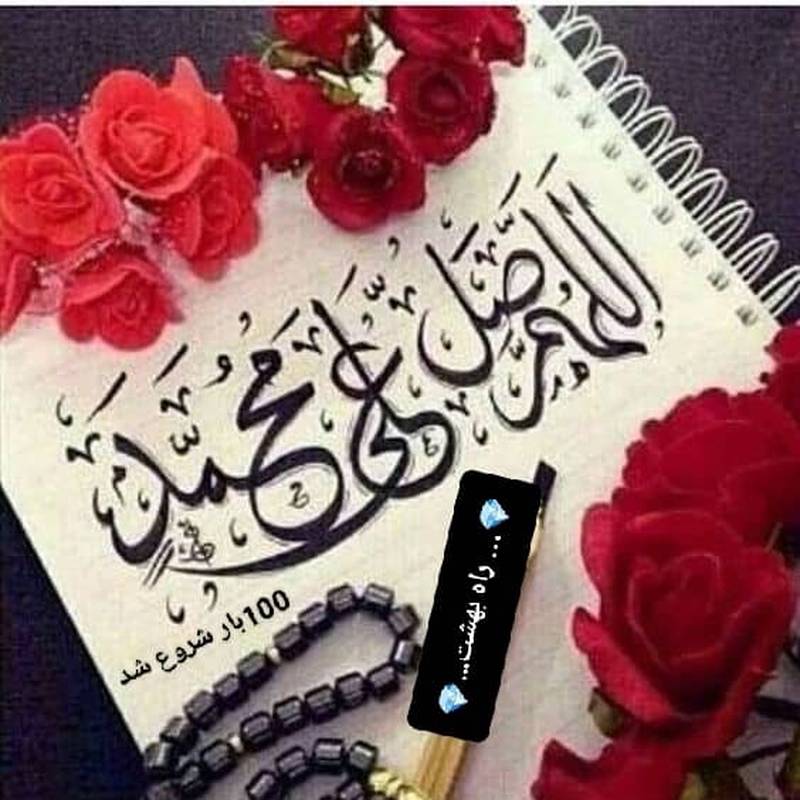 اللهم صل على محمد
100بار شروع شد
... راه بهشت...